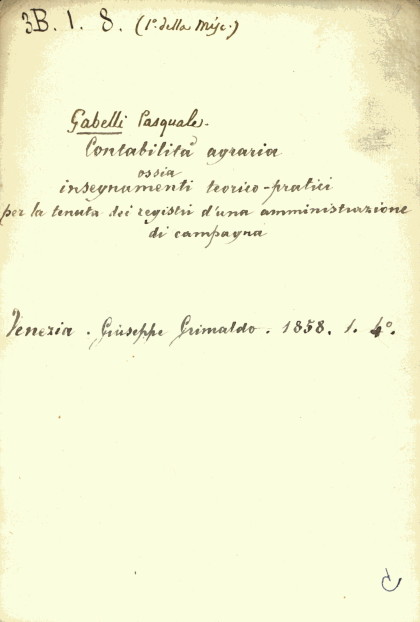 3B. 1. 8. (1º. della Misc.)
Gabelli Pasquale.
Contabilità agraria
ossia
insegnamenti teorico-pratici
per la tenuta dei registri d'una amministrazione
di campagna
Venezia. Giuseppe Grimaldo. 1858. 1. 4º.